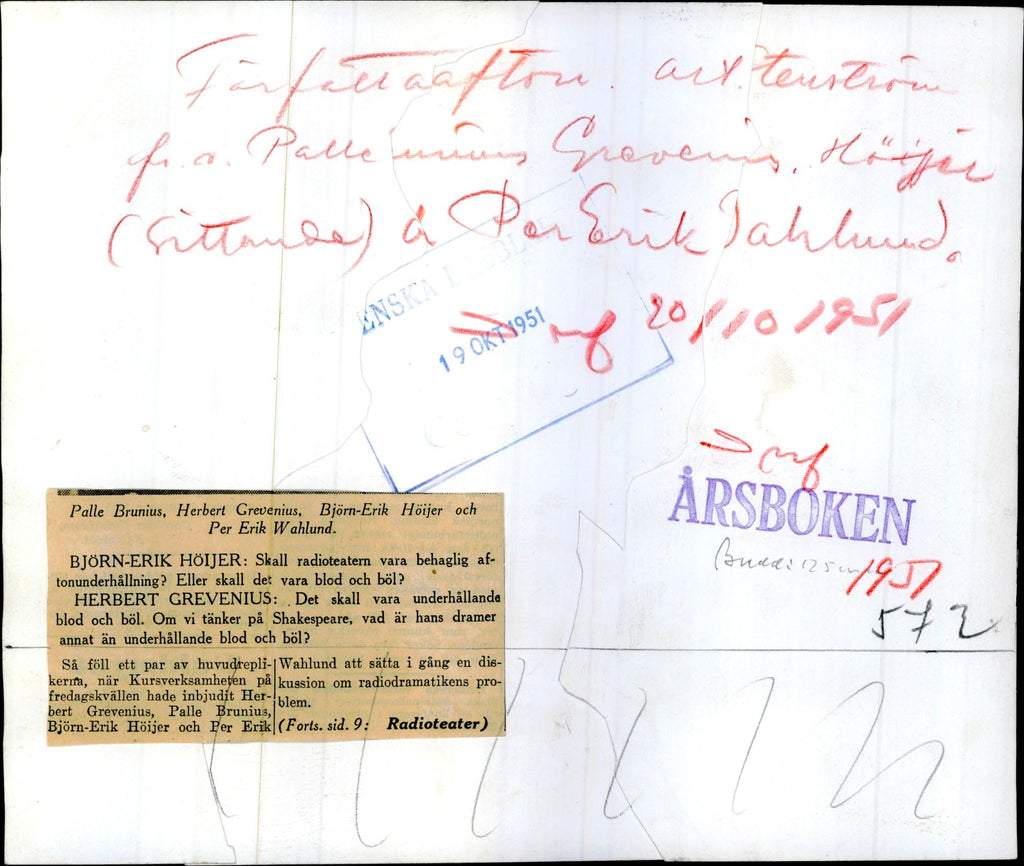 Författaafton. art. tenström
fr. v. Palle
Grevenius. Höijer
(Sittande) å Per Erik Wahlund.
ENSKA
19 OKT 1951
20/10 1951
ÅRSBOKEN
1951
572
Palle Brunius, Herbert Grevenius, Björn-Erik Höijer och
Per Erik Wahlund.
BJÖRN-ERIK HÖIJER: Skall radioteatern vara behaglig af-
tonunderhållning? Eller skall det vara blod och böl?
HERBERT GREVENIUS: Det skall vara underhållande
blod och böl. Om vi tänker på Shakespeare, vad är hans dramer
annat än underhållande blod och böl?
Så föll ett par av huvudrepli-
kerna, när Kursverksamheten på
fredagskvällen hade inbjudit Her-
bert Grevenius, Palle Brunius,
Björn-Erik Höijer och Per Erik
Wahlund att sätta i gång en dis-
kussion om radiodramatikens pro-
blem.
(Forts. sid. 9: Radioteater)